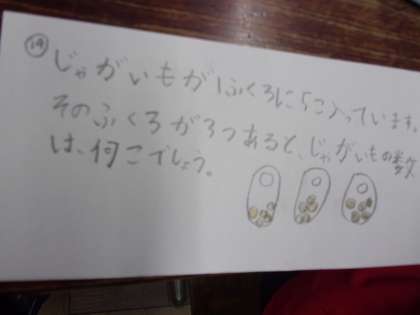 ⑲じゃがいもが1ふくろに5こ入っています。
そのふくろが3つあると、じゃがいもの数
は、何こでしょう。